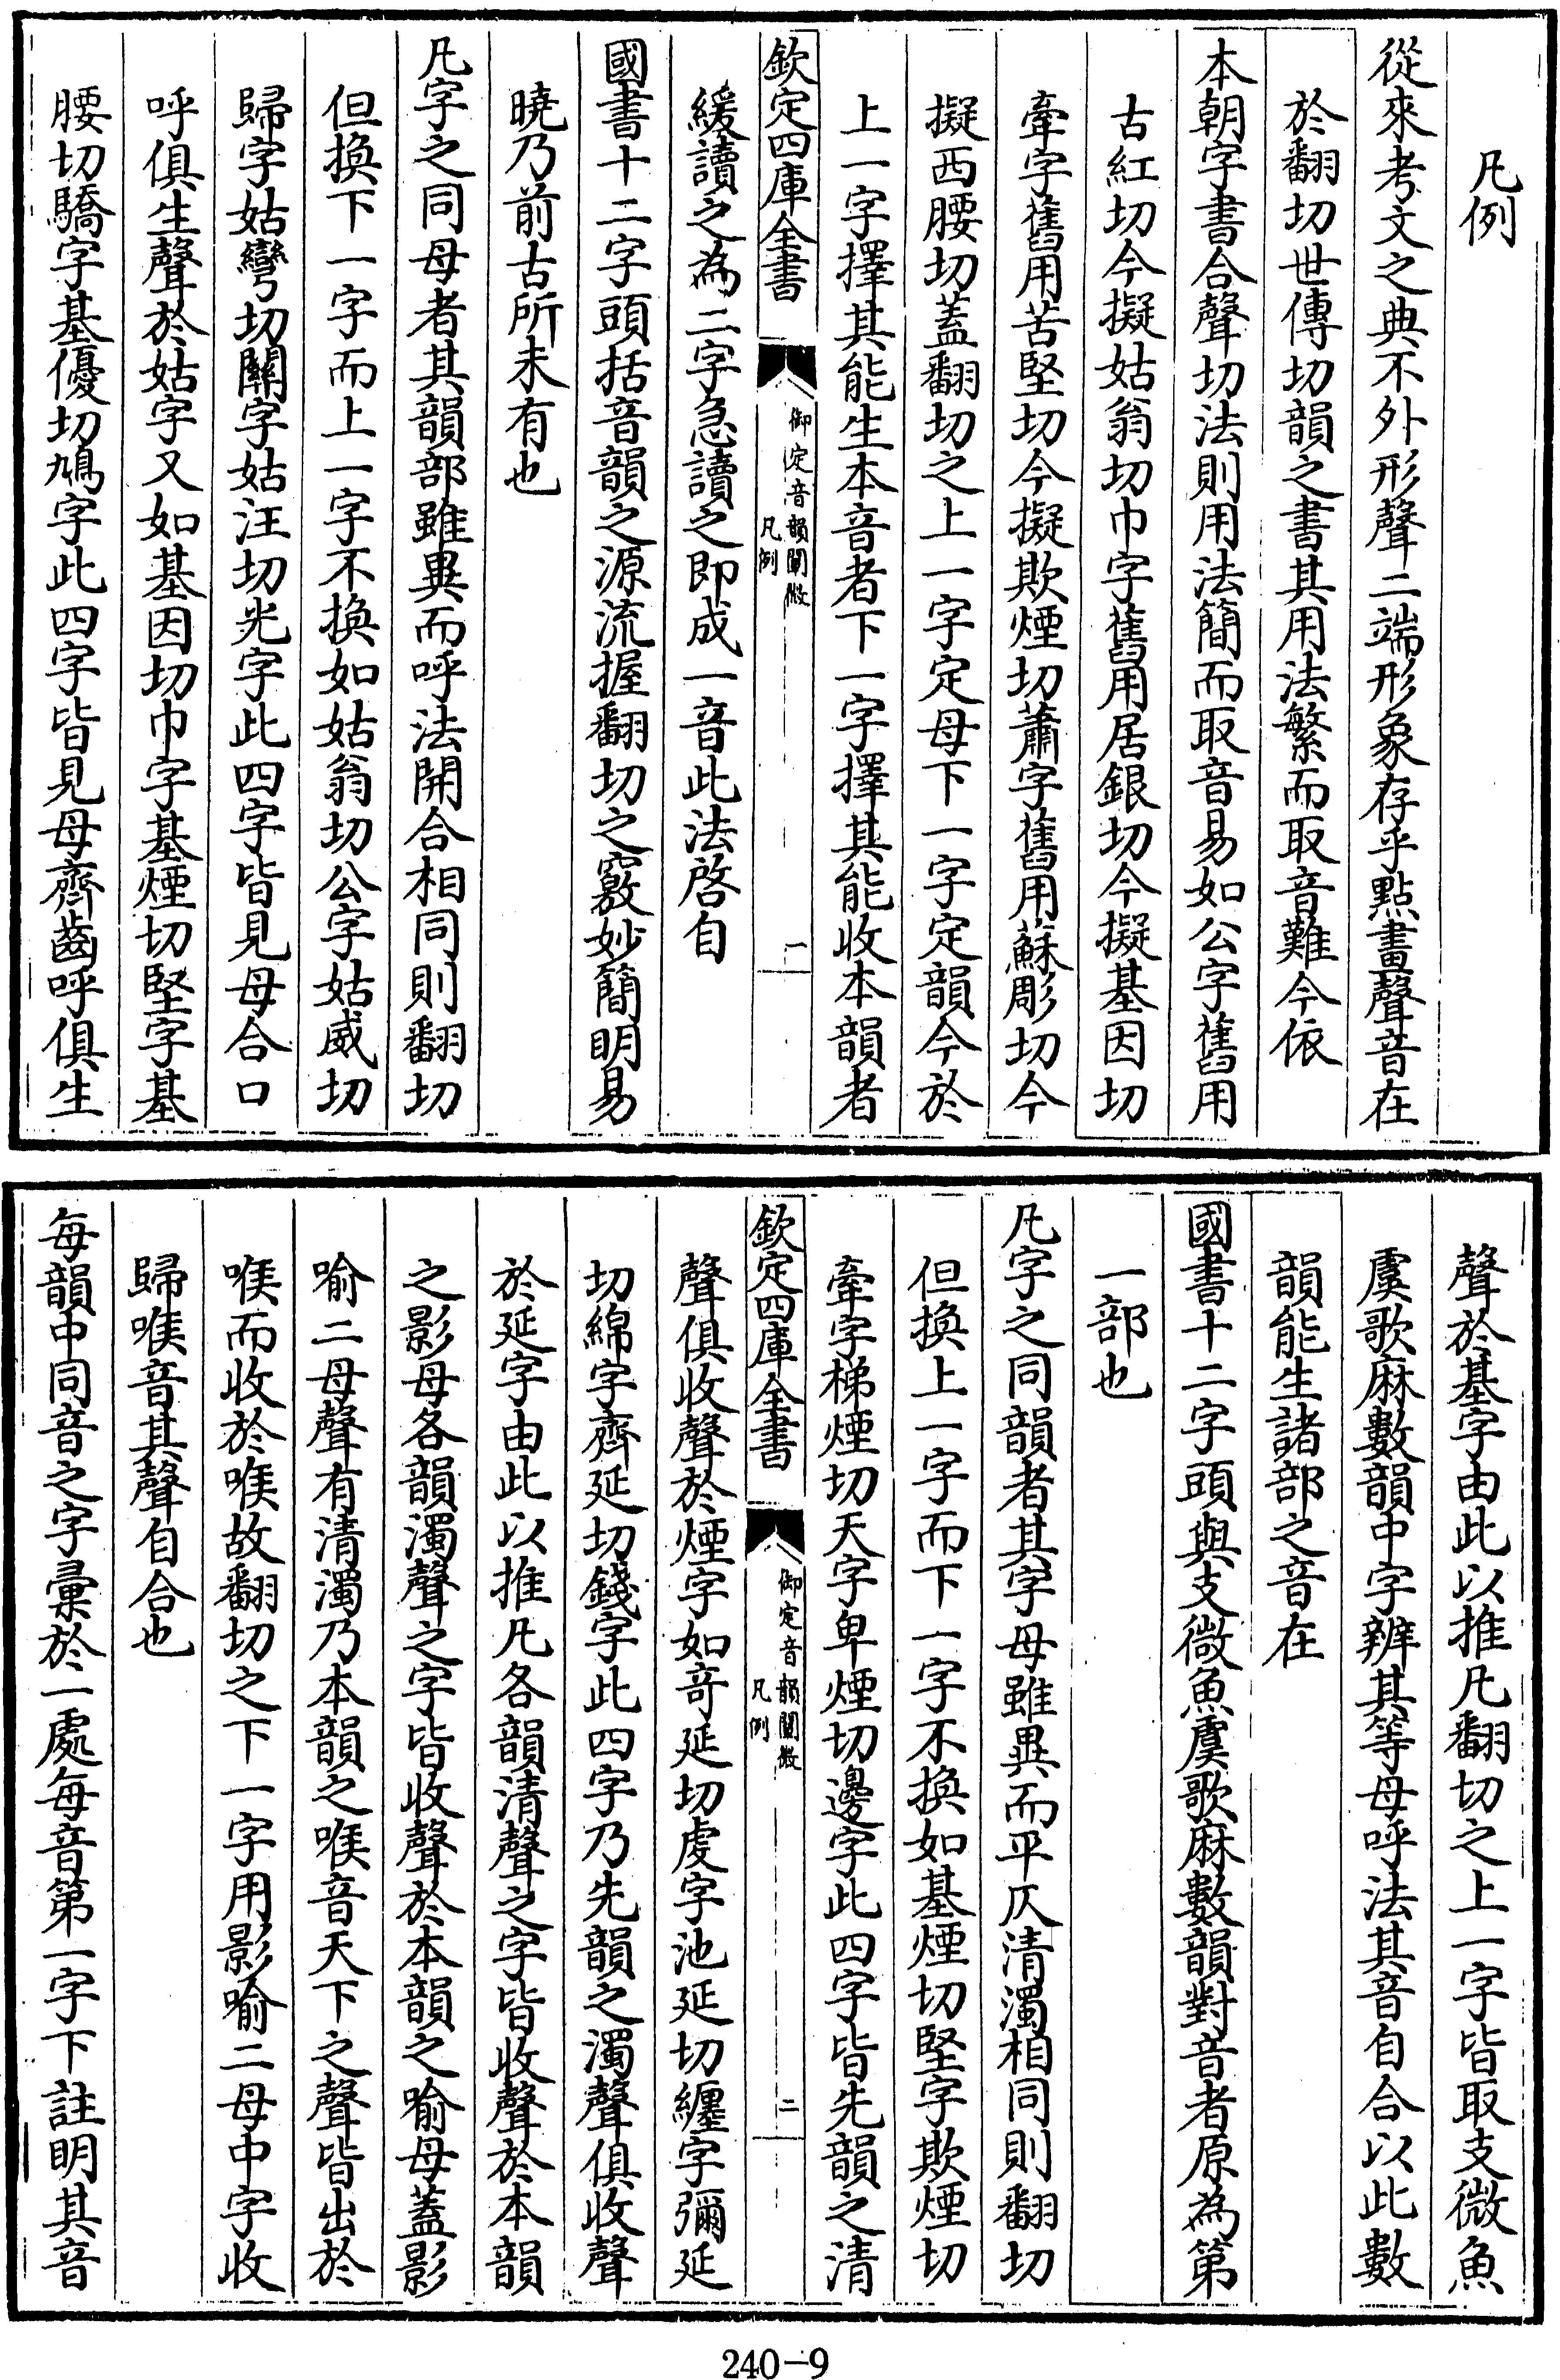 凡例
從來考文之典不外形聲二端形象存乎點畫聲音在
於翻切世傳切韻之書其用法繁而取音難今依
本朝字書合聲切法則用法簡而取音易如公字舊用
古紅切今擬姑翁切巾字舊用居銀切今擬基因切
牽字舊用苦堅切今擬欺煙切蕭字舊用蘇彫切今
擬西腰切蓋翻切之上一字定母下一字定韻今於
上一字擇其能生本音者下一字擇其能收本韻者
欽定四庫全書
御定音韻闡微
凡例
一
緩讀之為二字急讀之即成一音此法啓自
國書十二字頭括音韻之源流握翻切之竅妙簡明易
曉乃前古所未有也
凡字之同母者其韻部雖異而呼法開合相同則翻切
但換下一字而上一字不換如姑翁切公字姑威切
歸字姑彎切關字姑汪切光字此四字皆見母合口
呼俱生聲於姑字又如基因切巾字基煙切堅字基
腰切驕字基優切鳩字此四字皆見母齊齒呼俱生
聲於基字由此以推凡翻切之上一字皆取支微魚
虞歌麻數韻中字辨其等母呼法其音自合以此數
韻能生諸部之音在
國書十二字頭與支微魚虞歌麻數韻對音者原為第
一部也
凡字之同韻者其字母雖異而平仄清濁相同則翻切
但換上一字而下一字不換如基煙切堅字欺煙切
牽字梯煙切天字卑煙切邊字此四字皆先韻之清
欽定四庫全書
御定音韻闡微
凡例
二
聲俱收聲於煙字如奇延切虔字池延切纏字彌延
切綿字齊延切錢字此四字乃先韻之濁聲俱收聲
於延字由此以推凡各韻清聲之字皆收聲於本韻
之影母各韻濁聲之字皆收聲於本韻之喻母蓋影
喻二母聲有清濁乃本韻之喉音天下之聲皆出於
喉而收於喉故翻切之下一字用影喻二母中字收
歸喉音其聲自合也
每韻中同音之字彙於一處每音第一字下註明其音
240-9